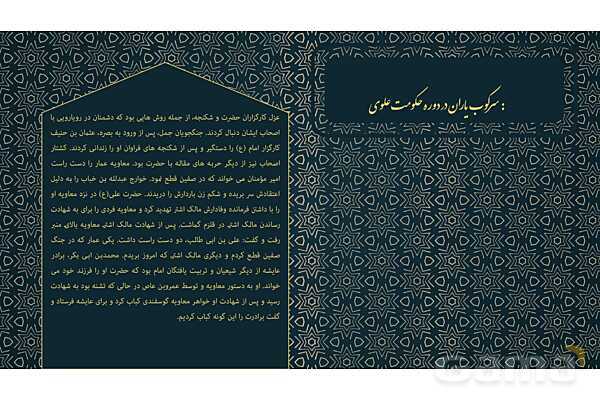 سرکوب یاران در دوره حکومت علوی :
عزل کارگزاران حضرت و شکنجه، از جمله روش هایی بود که دشمنان در رویارویی با
اصحاب ایشان دنبال کردند. جنگجویان جمل، پس از ورود به بصره، عثمان بن حنیف
کارگزار امام (ع) را دستگیر و پس از شکنجه های فراوان او را زندانی کردند. کشتار
اصحاب نیز از دیگر حربه های مقاله با حضرت بود. معاویه عمار را دست راست
امیر مؤمنان می خواند که در صفین قطع نمود. خوارج عبدالله بن خباب را به دلیل
اعتقادش سر بریده و شکم زن باردارش را دریدند. حضرت علی(ع) در نزه معاویه او
را با داشتن فرمانده وفادارش مالک اشتر تهدید کرد و معاویه فردی را برای به شهادت
رساندن مالک اشتر در قلزم گماشت. پس از شهادت مالک اشتر معاویه بالای منبر
رفت و گفت: علی بن ابی طالب، دو دست راست داشت. یکی عمار که در جنگ
صفین قطع کردم و دیگری مالک اشتر که امروز بریدم. محمدبن ابی بکر، برادر
عایشه از دیگر شیعیان و تربیت یافتگان امام بود که حضرت او را فرزند خود می
خواند. او به دستور معاویه و توسط عمروبن عاص در حالی که تشنه بود به شهادت
رسید و پس از شهادت او خواهر معاویه گوسفندی کباب کرد و برای عایشه فرستاد و
گفت برادرت را این گونه کباب کردیم.
gama